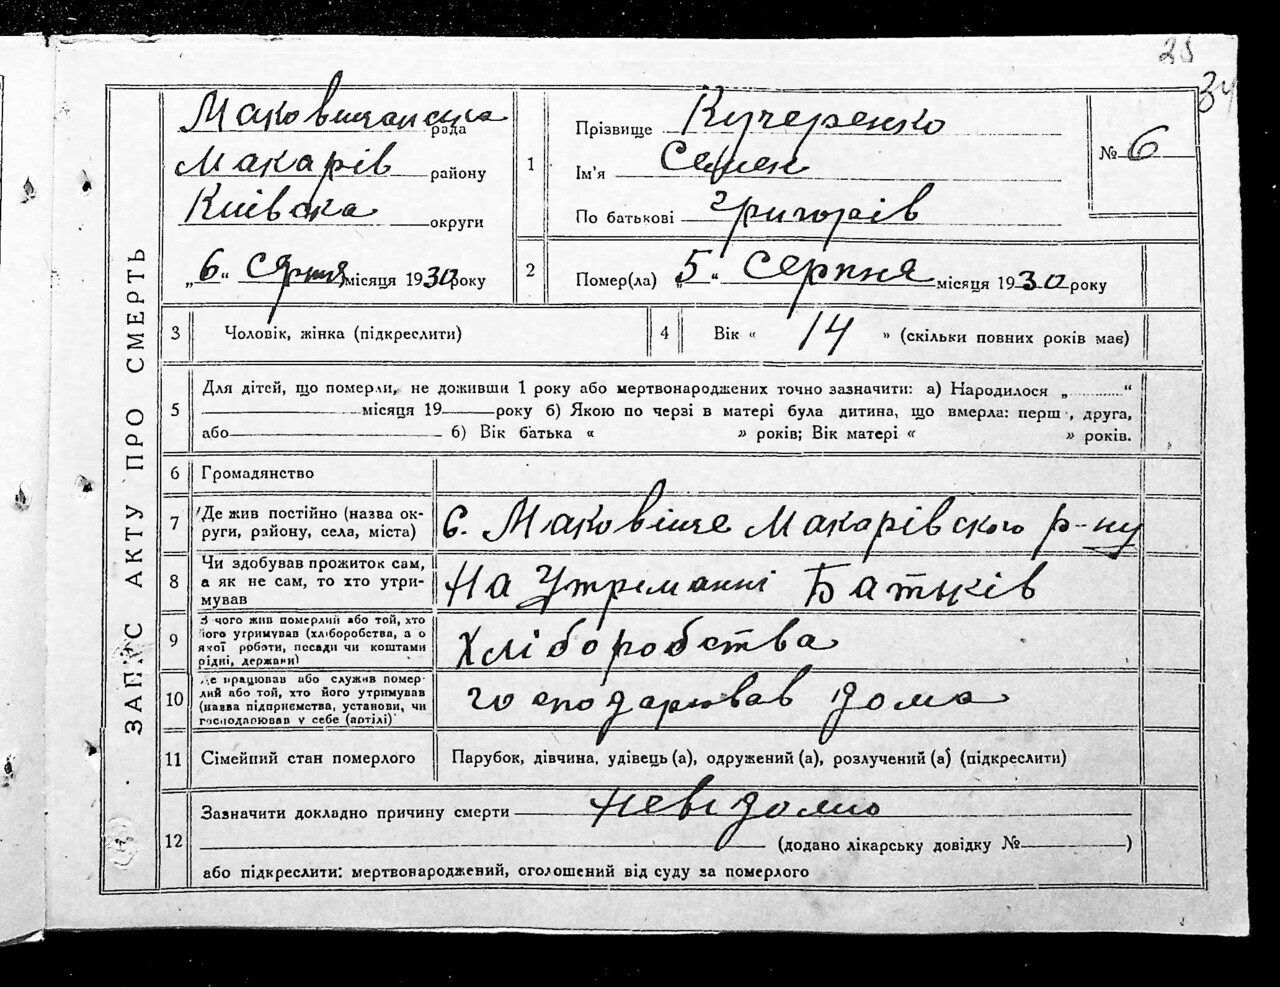 25
34
ЗАПИС АКТУ ПРО СМЕРТЬ
Маковищанська рада
Макарів району
Київска округи
„6“ Серпня місяця 1930 року
1
Прізвище Кучеренко
Ім'я Семен
По батькові Григорів
№ 6
2
Помер(ла) „5“ Серпня місяця 1930 року
3 Чоловік, жінка (підкреслити)
4 Вік « 14 » (скільки повних років має)
5
Для дітей, що померли, не доживши 1 року або мертвонароджених точно зазначити: а) Народилося „ “
місяця 19 року б) Якою по черзі в матері була дитина, що вмерла: перш , друга,
або б) Вік батька « » років; Вік матері « » років.
6 Громадянство
7
Де жив постійно (назва ок-
руги, району, села, міста)
С. Маковище Макарівского р-ну
8
Чи здобував прожиток сам,
а як не сам, то хто утри-
мував
На Утриманні Батьків
9
З чого жив померлий або той, хто
його утримував (хліборобства, а о
якої роботи, посади чи коштами
рідні, держави)
Хліборобства
10
Де працював або служив помер-
лий або той, хто його утримував
(назва підприємства, установи, чи
господарював у себе (артілі)
господарював дома
11 Сімейний стан померлого
Парубок, дівчина, удівець (а), одружений (а), розлучений (а) (підкреслити)
12
Зазначити докладно причину смерти невідомо
(додано лікарську довідку № )
або підкреслити: мертвонароджений, оголошений від суду за померлого